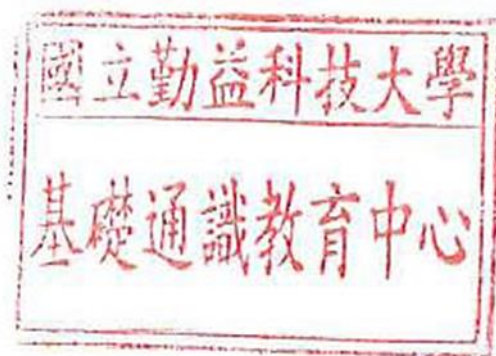 國立勤益科技大學
基礎通識教育中心